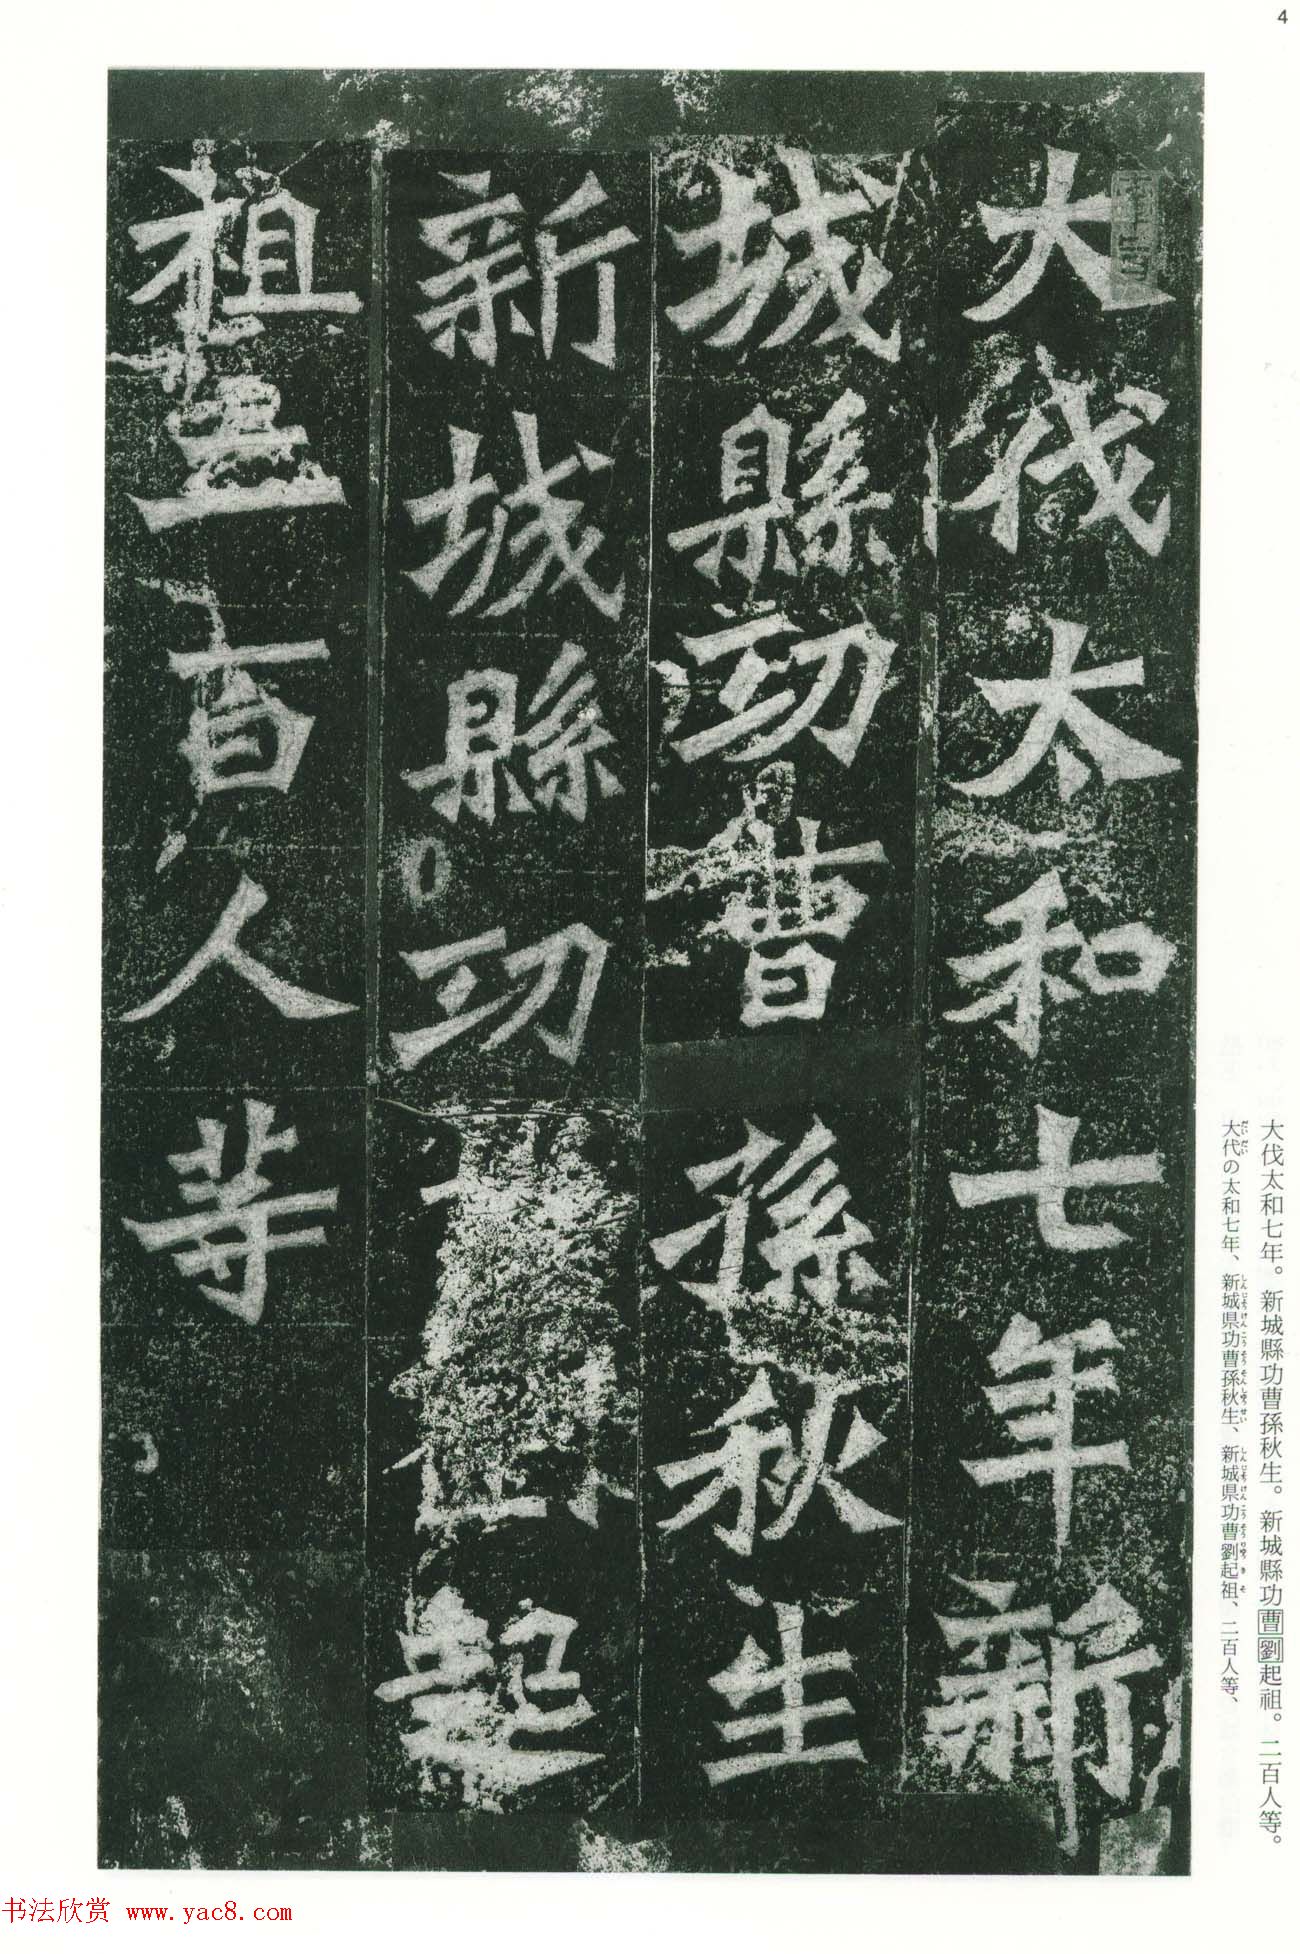 4
大伐太和七年新
城縣功曹孫秋生
新城縣功起
祖二百人等
大伐太和七年。新城縣功曹孫秋生。新城縣功曹劉起祖。二百人等。
大代の太和七年、新城県功曹孫秋生、新城県功曹劉起祖、二百人等、
书法欣赏 www.yac8.com